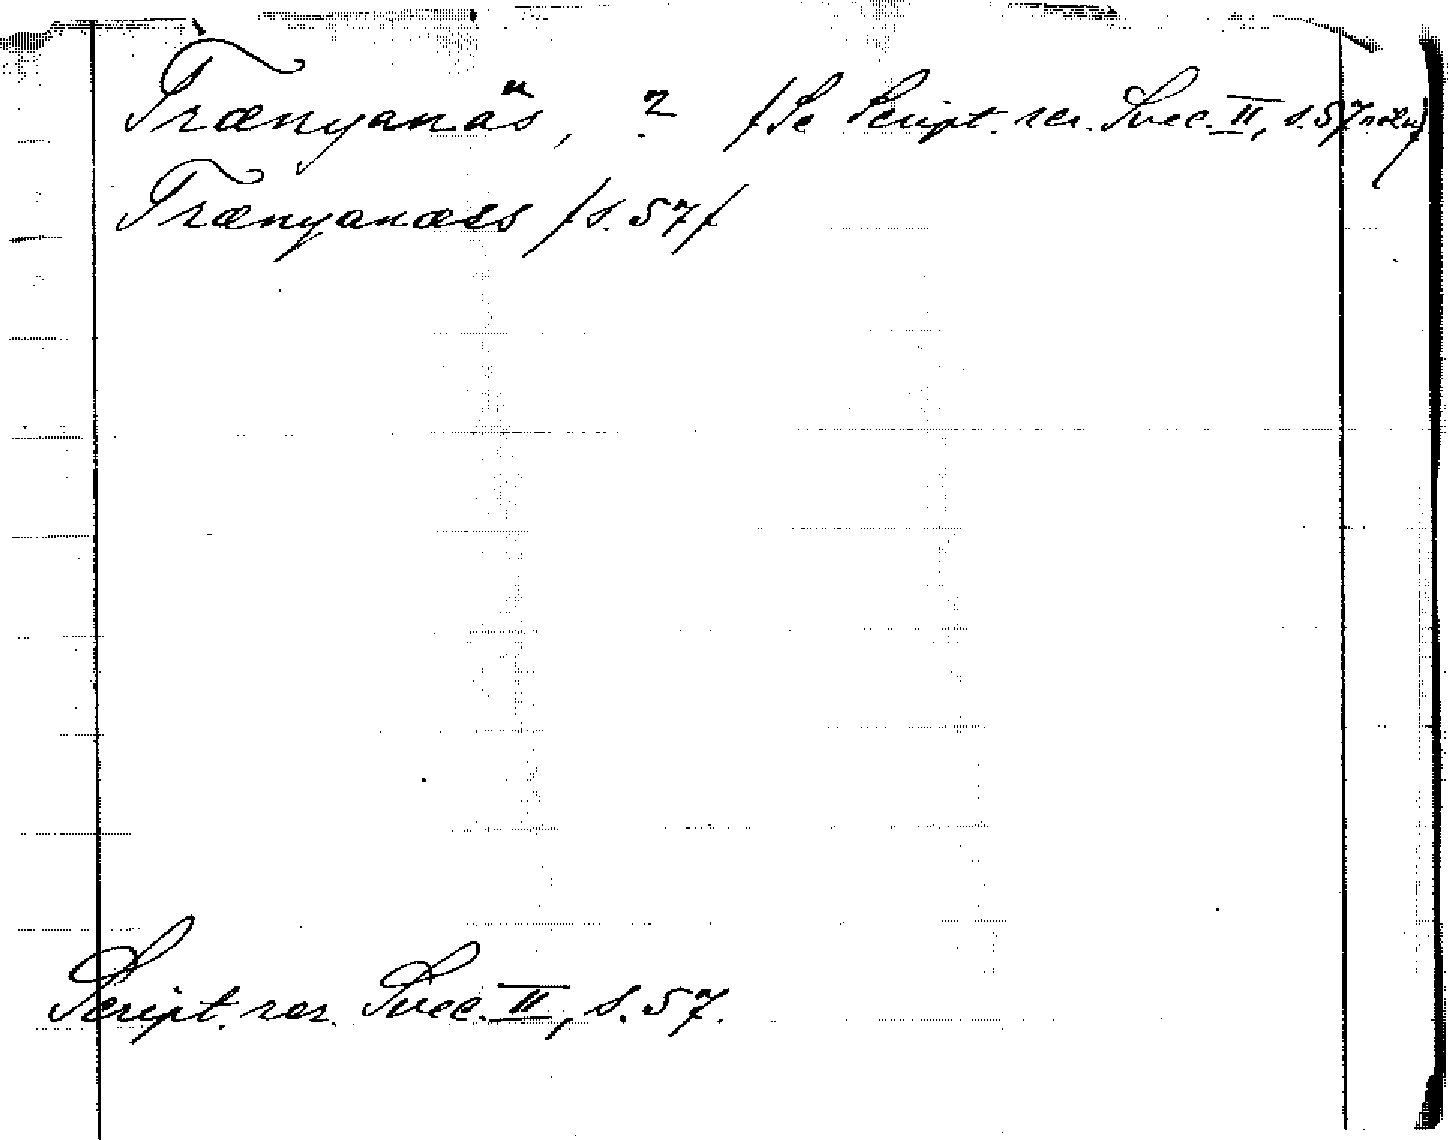 Trænyanäs, ? /Se Script. rer. Svec. II, s. 57 noten/
Trænyanæss /s. 57/
Script. rer. Svec. II, s. 57.